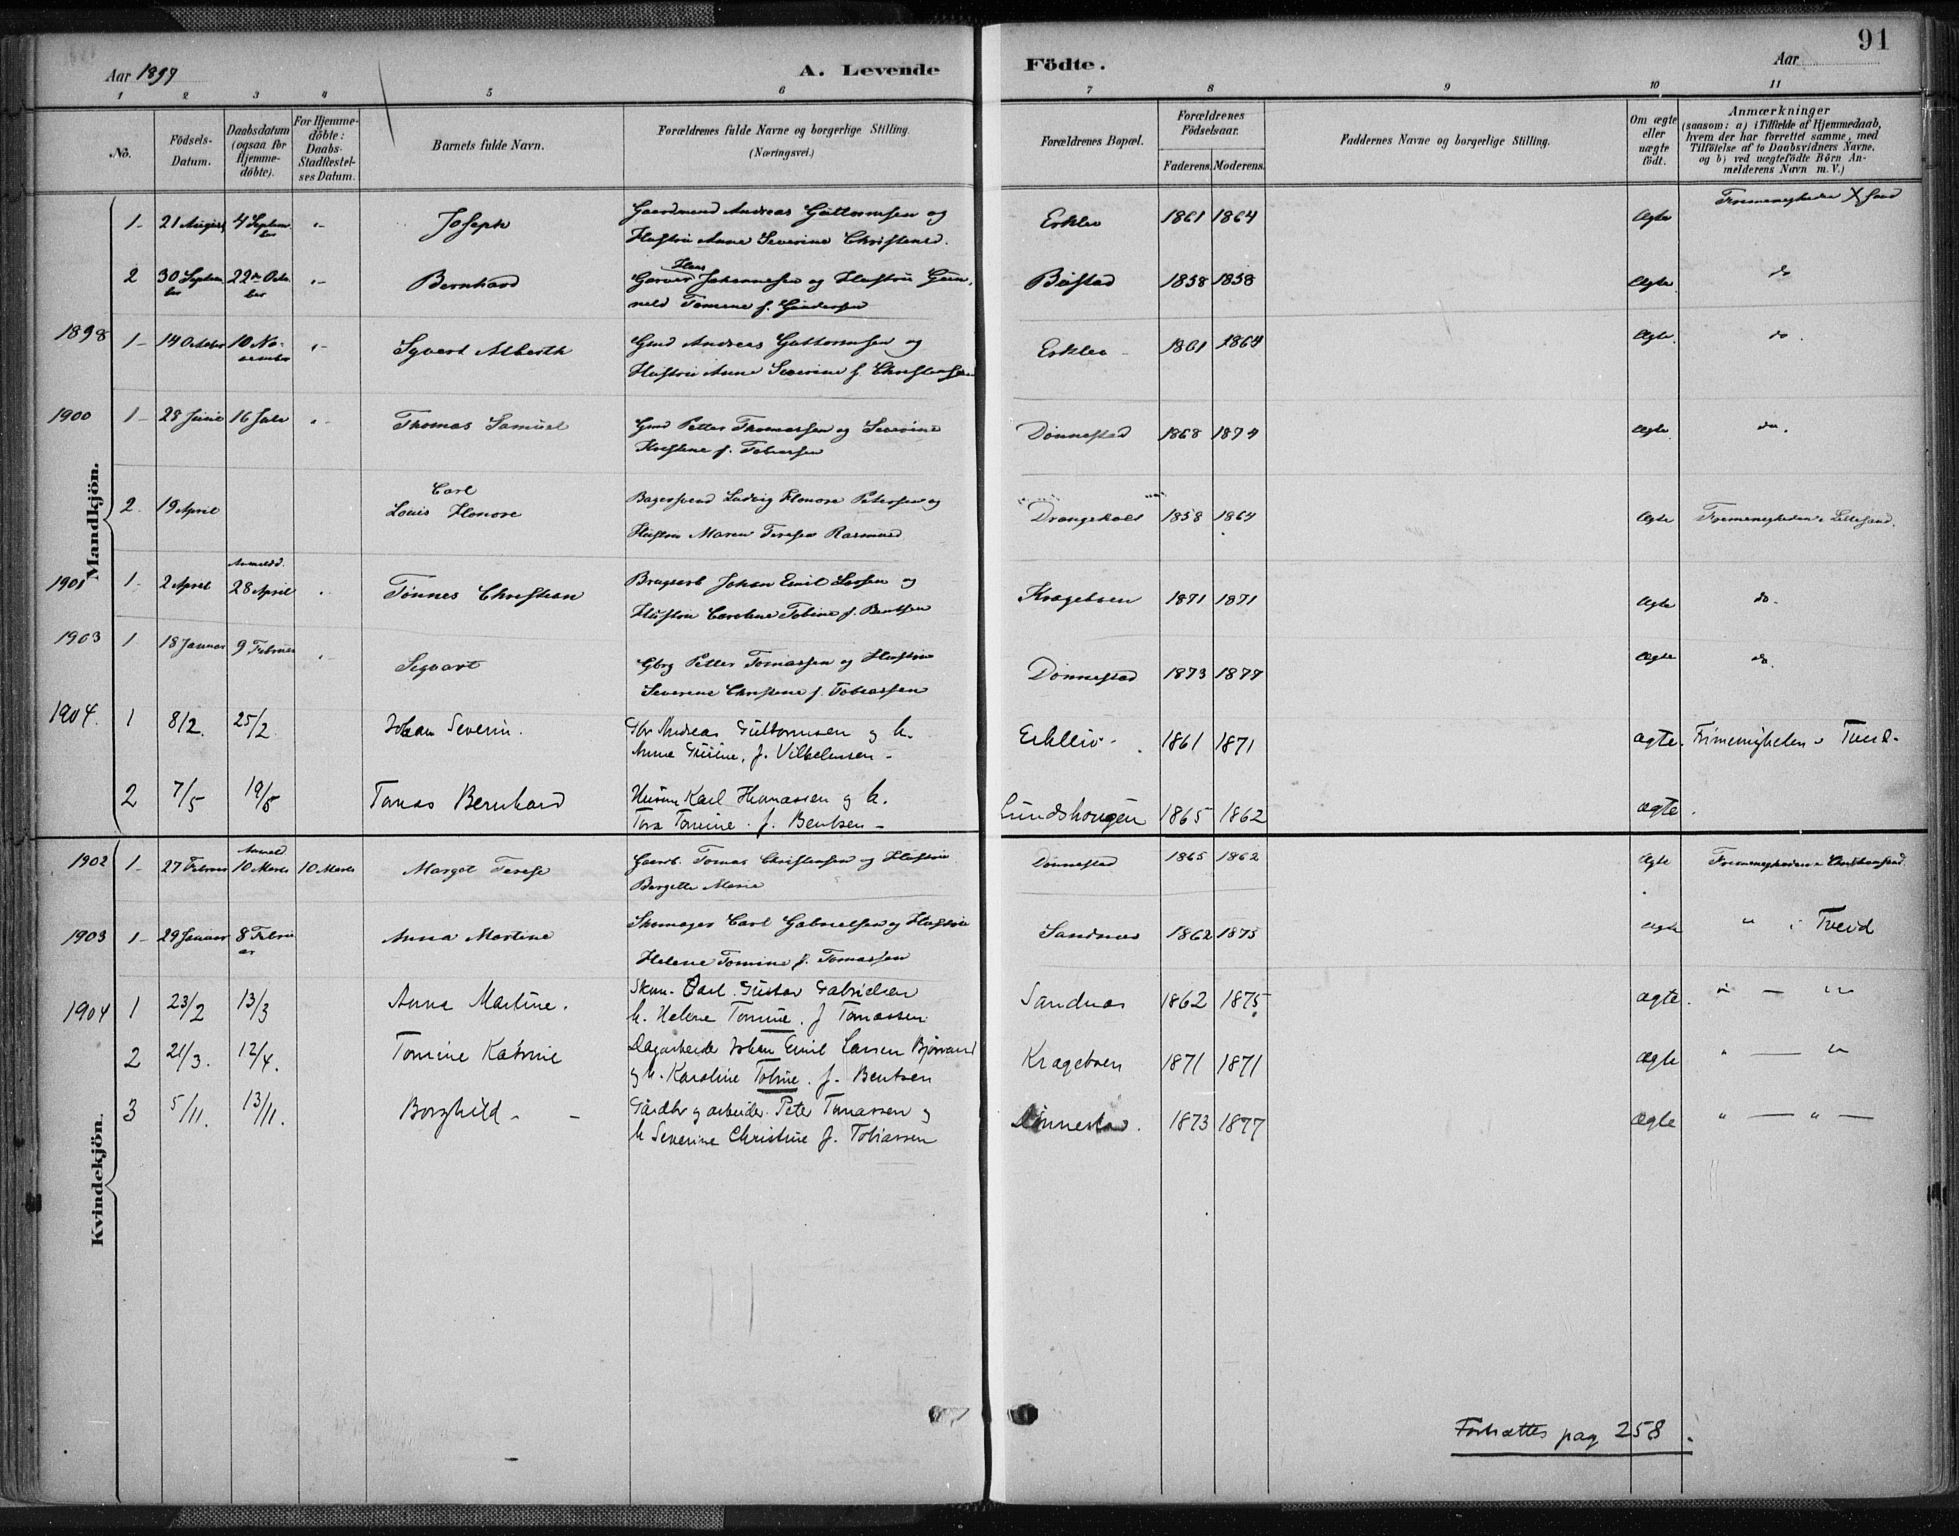 91
Aar 1897
A. Levende
Födte.
Aar
1 2 3 4 5 6 7 8 9 10 11
Nō.
Födsels-Datum.
Daabsdatum (ogsaa for Hjemme-döbte).
For Hjemme-döbte: Daabs-Stadfæstel-ses Datum.
Barnets fulde Navn.
Forældrenes fulde Navne og borgerlige Stilling.
(Næringsvei.)
Forældrenes Bopæl.
Forældrenes Födselsaar.
Faderens. Moderens.
Faddernes Navne og borgerlige Stilling.
Om ægte eller uægte födt.
Anmærkninger
(saasom: a) i Tilfælde af Hjemmedaab, hvem der har forrettet samme, med Tilföielse af to Daabsvidners Navne, og b) ved uægtefödte Börn An-melderens Navn m. V.)
Mandkjön.
1 21 August 4 September Joseph Gaardmand Andreas Guttormsen og Erklev 1861 1864 Ægte Frimenigheden X sand
Hustru Anne Severine Christensd.
2 30 September 22 October Bernhard Garver Hans Johannesen og Hustru Gun- Bustad 1858 1858 Ægte do
neld Tomine f. Gundersen
1898 1 14 October 10 November Syvert Alberth Gmd Andreas Guttormsen og Erklev 1861 1864 Ægte do.
Hustru Anne Severine f. Christensen
1900 1 28 Juni 16 Juli Thomas Samuel Gmd Petter Thomassen og Severine Dönnestad 1868 1874 Ægte do.
Kristene f. Tobiassen
2. 19 April Carl Louis Honore Ludvig Honore Petersen og Drangeholt 1858 1864 Ægte Frimenigheden i Lillesand.
Hustru Maren Terese
1901 1 2 April Anmeldt 28 April Tönnes Christian Johan Emil Larsen og Krageboen 1871 1871 Ægte do.
Hustru Caroline Tobine f. Bentsen
1903 1 18 Januar 9 Februar Sigvart Petter Tomassen og Hustru Dönnestad 1873 1877 Ægte do.
Severine Christene f. Tobiassen
1904. 1 8/2. 25/2 Johan Severin. Andreas Guttormsen og h. Erklev 1861 1871 ægte. Frimenigheden i Tveid.
Anne f. Vilhelmsen
2 7/5 19/6 Tomas Bernhard Karl Thomassen og h. Lundshougen 1865 1862 ægte.
Tora Tomine. f. Bentsen
Kvindekjön.
1902 1 27 Februar Anmeld 10 Marts 10 Marts Margot Terese Gaardb. Tomas Christensen og Hustru Dönnestad 1865 1862 Ægte Frimenigheden i Christiansand.
Bergette Marie
1903 1 29 Januar 8 Februar Anna Martine Skomager Carl Gabrielsen og Hustru Sandnæs 1862 1875 Ægte " i Tveid
Helene Tomine f. Tomassen
1904 1 23/2 13/3 Anna Martine. Skom. Carl Gustav Gabrielsen Sandnæs 1862 1875 ægte. " — "
h. Helene Tomine. f Tomassen
2 21/3. 12/4. Tomine Katrine Dagarbeide Johan Emil Larsen Bjørvand Krageboen 1871 1871 ægte " — "
og h. Karoline Tobine. f. Bentsen
3 5/11. 13/11. Borghild Gårdbr og arbeider Peter Tomassen og Dönnestad. 1873 1877 ægte " — " —
h Severine Christine f. Tobiassen
Fortsættes pag 258.